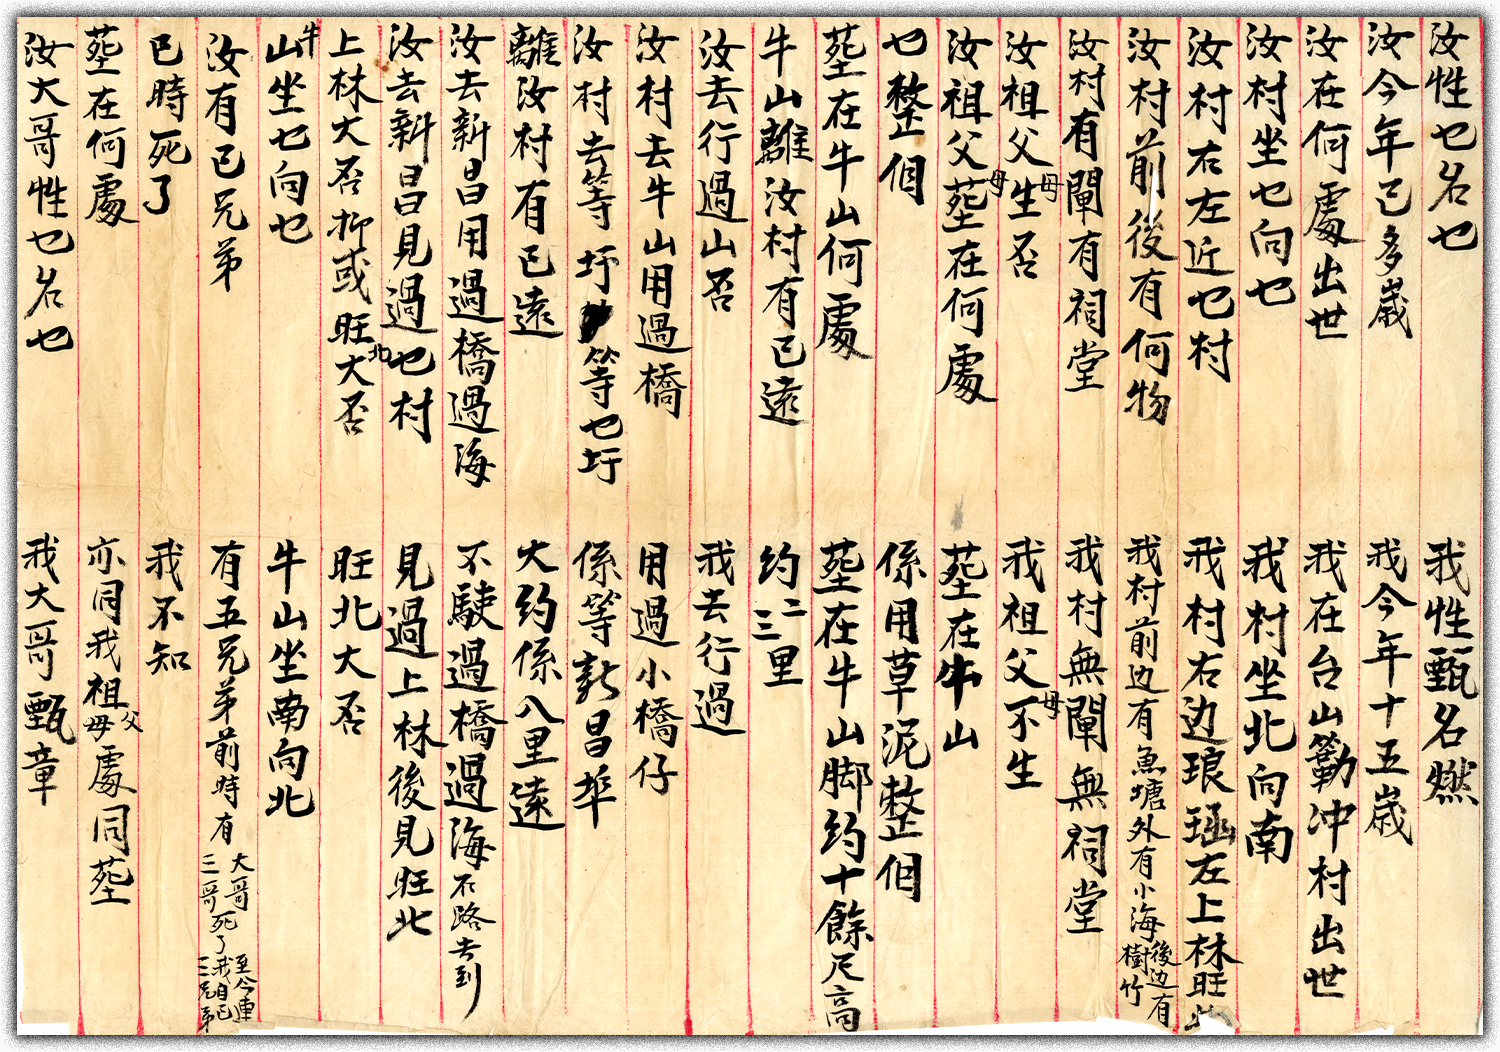 汝性乜名乜
我性甄名燃
汝今年已多歲
我今年十五歲
汝在何處出世
我在台山簕冲村出世
汝村坐乜向乜
我村坐北向南
汝村右左近乜村
我村右边琅琺左上林旺
汝村前後有何物
我村前边有魚塘外有小海後边有樹竹
汝村有閘有祠堂
我村無閘無祠堂
汝祖父母生否
我祖父母不生
汝祖父母塟在何處
塟在牛山
乜整佀
係用草泥整佀
塟在牛山何處
塟在牛山脚約十餘尺高
牛山離汝村有已遠
約二三里
汝去行過山否
我去行過
汝村去牛山用過橋
用過小橋仔
汝村去等圩等乜圩
係等新昌埠
離汝村有已遠
大約係八里遠
汝去新昌用過橋過海
不駛過橋過海石路去到
汝去新昌見過乜村
見過上林後見旺北
上林大否抑或旺北大否
旺北大否
牛山坐乜向乜
牛山坐南向北
汝有已兄弟
有五兄弟前時有大哥三哥死了至今連我自已三兄弟
已時死了
我不知
塟在何處
亦同我祖父母處同塟
汝大哥性乜名乜
我大哥甄章